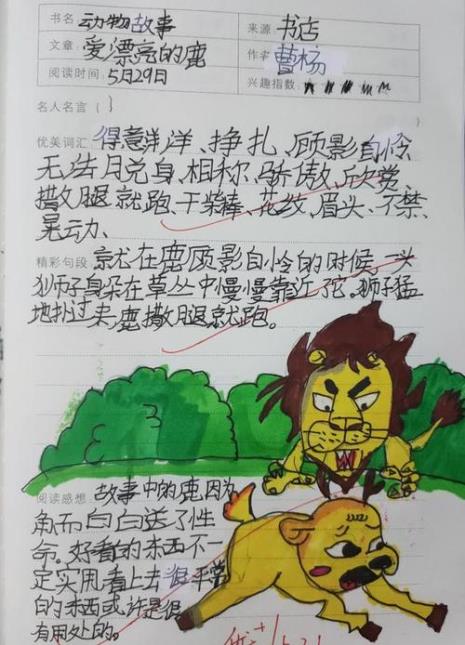 书名 动物故事 来源：书店
文章：爱漂亮的鹿 作者 曹杨
阅读时间：5月29日 兴趣指数：
名人名言（ ）
优美词汇 得意洋洋、挣扎、顾影自怜
无法脱身、相称、骄傲、欣赏、
撒腿就跑、干柴棒、花纹、眉头、不禁、
晃动、
精彩句段 就在鹿顾影自怜的时候，一头
狮子身朵在草丛中慢慢靠近了它。狮子猛
地扑过来，鹿撒腿就跑。
阅读感想 故事中的鹿，因为
角而白白送了性
命。好看的东西不一
定实用，看上去很平常
的东西或许是很
有用处的。